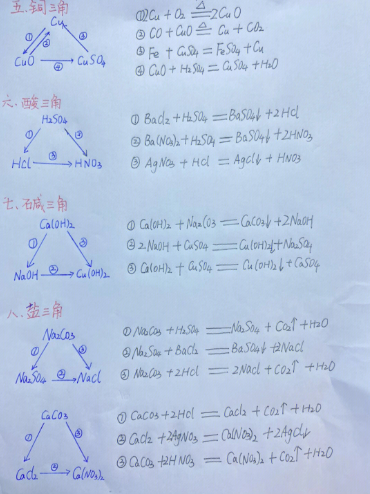 五、铜三角
Cu
① ②
③
CuO ④ CuSO₄
①2Cu + O₂ =△= 2CuO
② CO + CuO =△= Cu + CO₂
③ Fe + CuSO₄ = FeSO₄ + Cu
④ CuO + H₂SO₄ = CuSO₄ + H₂O
六、酸三角
H₂SO₄
① ②
HCl ③ HNO₃
① BaCl₂ + H₂SO₄ = BaSO₄↓ + 2HCl
② Ba(NO₃)₂ + H₂SO₄ = BaSO₄↓ + 2HNO₃
③ AgNO₃ + HCl = AgCl↓ + HNO₃
七、碱三角
Ca(OH)₂
① ③
NaOH ② Cu(OH)₂
① Ca(OH)₂ + Na₂CO₃ = CaCO₃↓ + 2NaOH
② 2NaOH + CuSO₄ = Cu(OH)₂↓ + Na₂SO₄
③ Ca(OH)₂ + CuSO₄ = Cu(OH)₂↓ + CaSO₄
八、盐三角
Na₂CO₃
① ③
Na₂SO₄ ② NaCl
① Na₂CO₃ + H₂SO₄ = Na₂SO₄ + CO₂↑ + H₂O
② Na₂SO₄ + BaCl₂ = BaSO₄↓ + 2NaCl
③ Na₂CO₃ + 2HCl = 2NaCl + CO₂↑ + H₂O
CaCO₃
① ③
CaCl₂ ② Ca(NO₃)₂
① CaCO₃ + 2HCl = CaCl₂ + CO₂↑ + H₂O
② CaCl₂ + 2AgNO₃ = Ca(NO₃)₂ + 2AgCl↓
③ CaCO₃ + 2HNO₃ = Ca(NO₃)₂ + CO₂↑ + H₂O